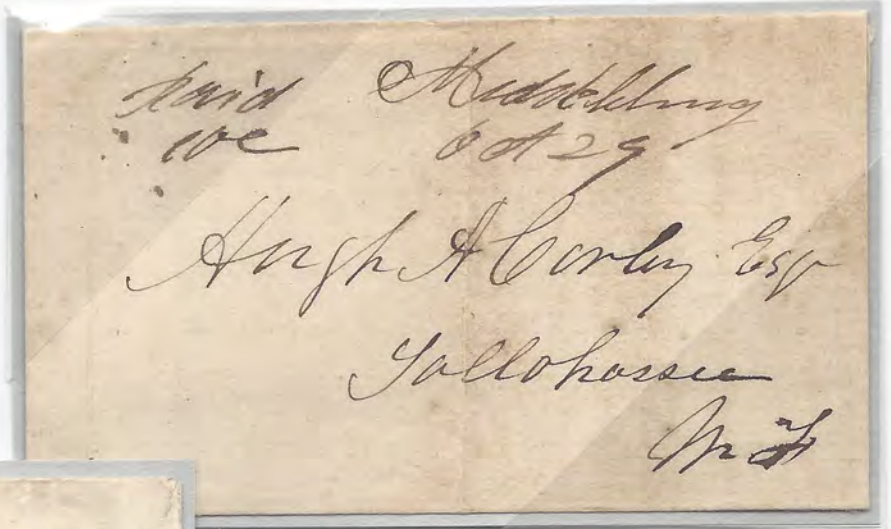 Paid Middleburg
10c Oct 29
Hugh A Corley Esqr
Tallahassee
M F